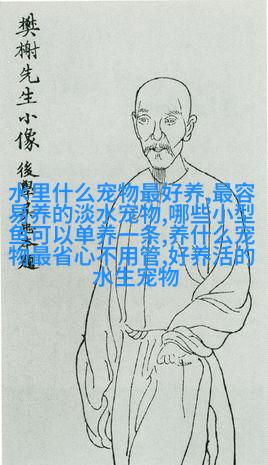 樊榭先生小像
後學
水里什么宠物最好养,最容
易养的淡水宠物,哪些小型
鱼可以单养一条,养什么宠
物最省心不用管,好养活的
水生宠物